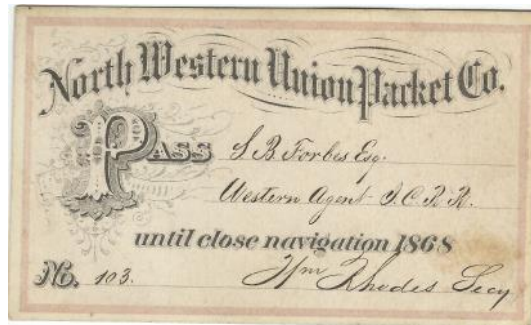 North Western Union Packet Co.
PASS S. B. Forbes Esq.
Western Agent I. C. R. R.
until close navigation 1868
No. 103. Wm Rhodes Secy